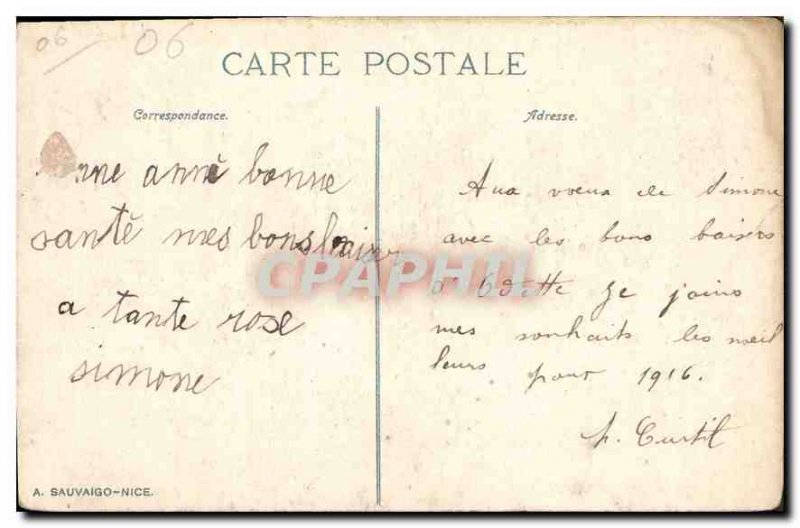 06 06
CARTE POSTALE
Correspondance.
Adresse.
anné bonne
santé mes bons baiser
a tante rose
simone
Aux voeux de Simone
avec les bons baisers
d'Odette je joins
mes souhaits les meil
leurs pour 1916.
CPAPHIL
A. SAUVAIGO-NICE.